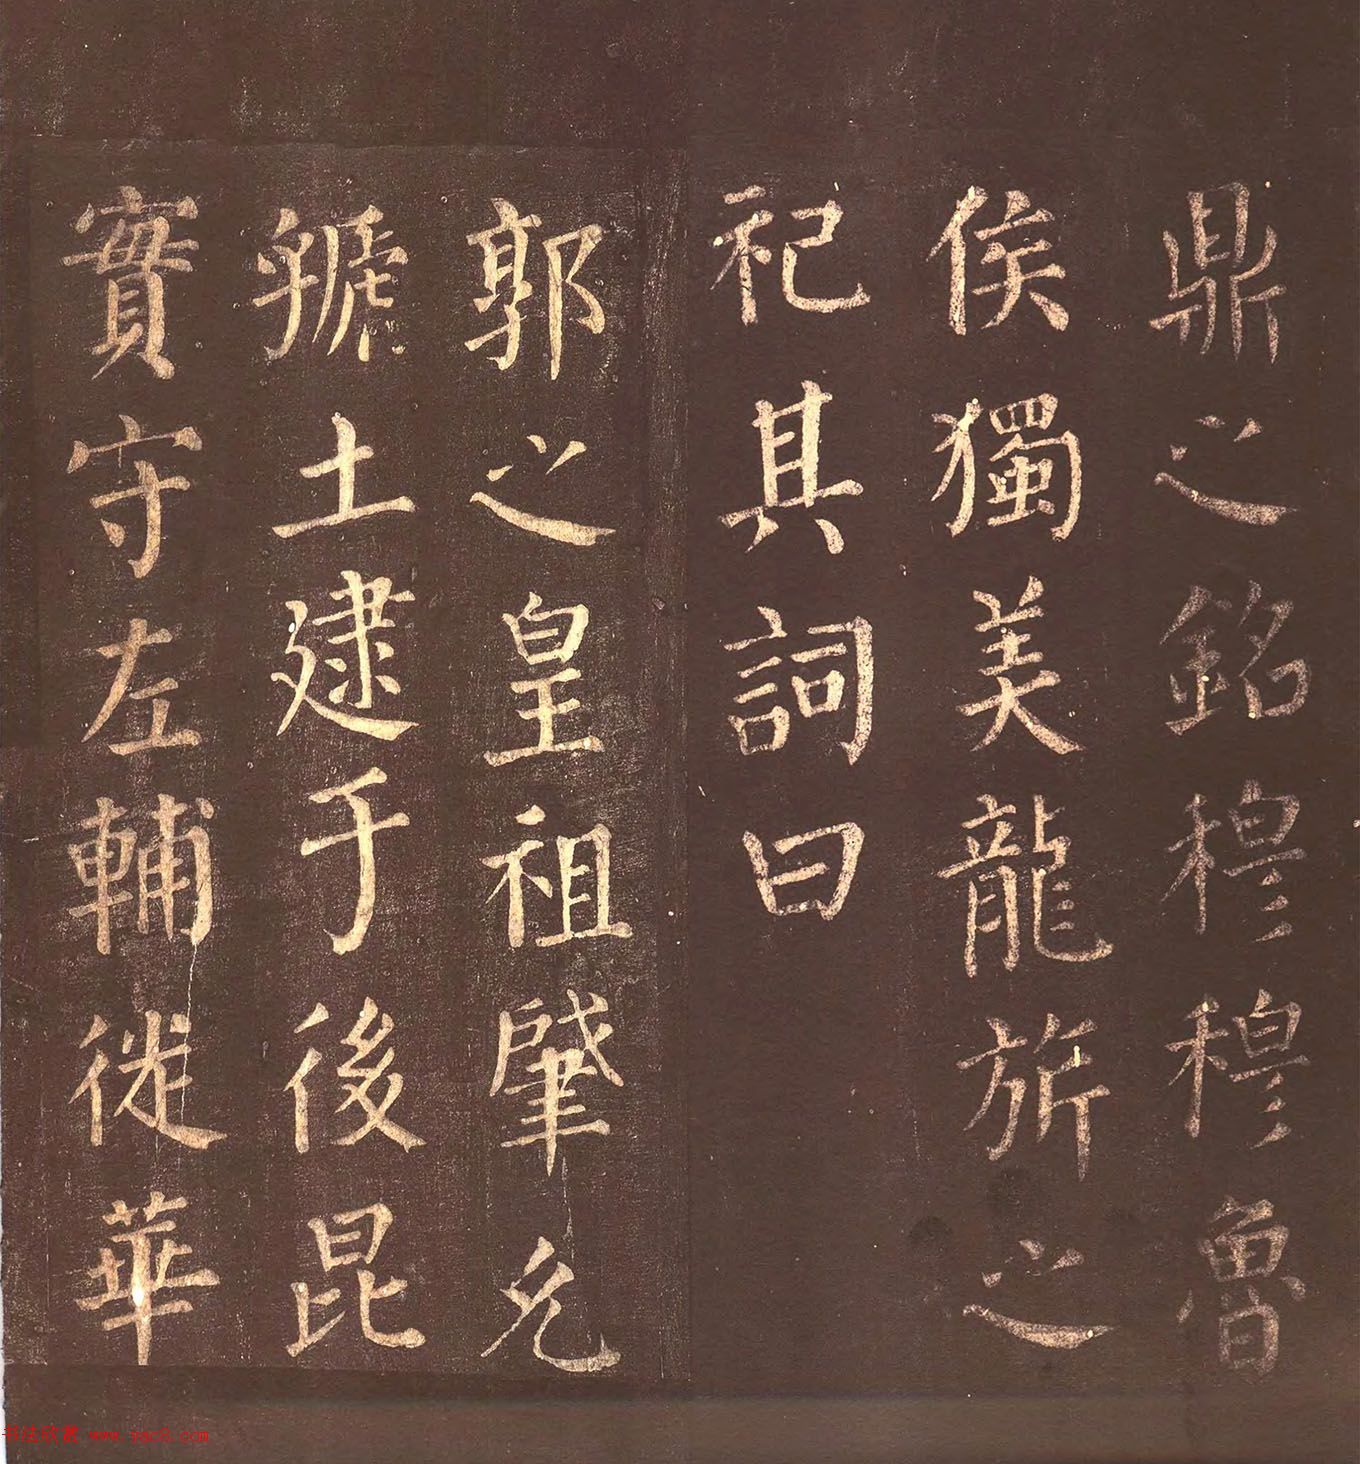 鼎之銘穆穆魯
侯獨美龍旂之
祀其詞曰
郭之皇祖肇允
虢土建于後昆
實守左輔徙華
书法欣赏 www.yac8.com